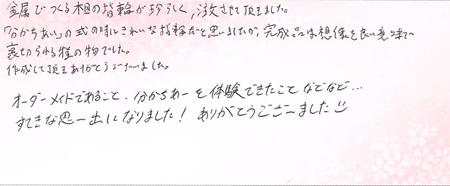 金属でつくる木目の指輪が珍しく、注文させて頂きました。
「分かちあい」の式の時にきれいな指輪だと思いましたが、完成品は想像を良い意味で
裏切られる程の物でした。
作成して頂きありがとうございました。
オーダーメイドであること、分かちあいを体験できたことなどなど…
すてきな思い出になりました！ ありがとうございました